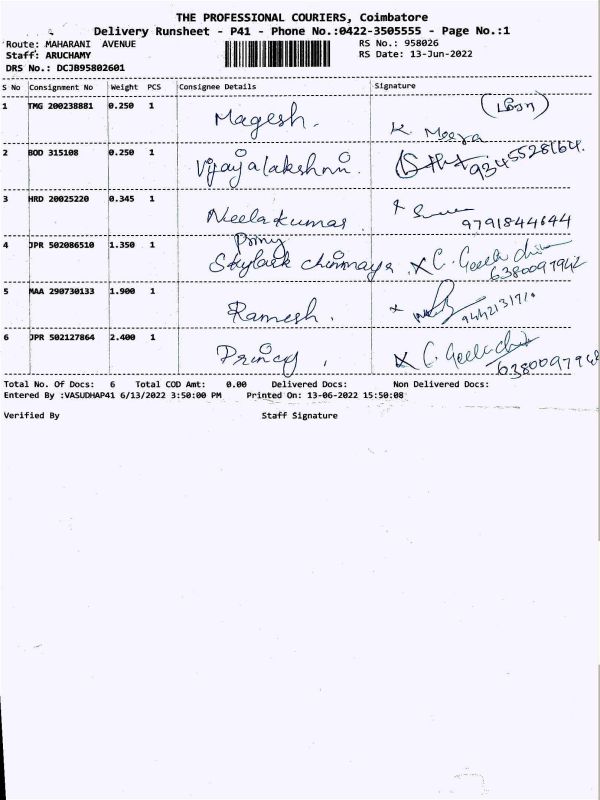 THE PROFESSIONAL COURIERS, Coimbatore
Delivery Runsheet - P41 - Phone No.:0422-3505555 - Page No.:1
Route: MAHARANI AVENUE RS No.: 958026
Staff: ARUCHAMY RS Date: 13-Jun-2022
DRS No.: DCJB95802601
S No Consignment No Weight PCS Consignee Details Signature
1 TMG 200238881 0.250 1 Magesh. K Meera
2 BOD 315108 0.250 1 Vijayalakshmi. 9345528164.
3 HRD 20025220 0.345 1 Neelakumar 9791844644
4 JPR 502086510 1.350 1 Skylark chinmaya. X C. Geetha 6380097942
5 MAA 290730133 1.900 1 Ramesh.
6 JPR 502127864 2.400 1 Princy. X C. 63800979
Total No. Of Docs: 6 Total COD Amt: 0.00 Delivered Docs: Non Delivered Docs:
Entered By :VASUDHAP41 6/13/2022 3:50:00 PM Printed On: 13-06-2022 15:50:08
Verified By Staff Signature